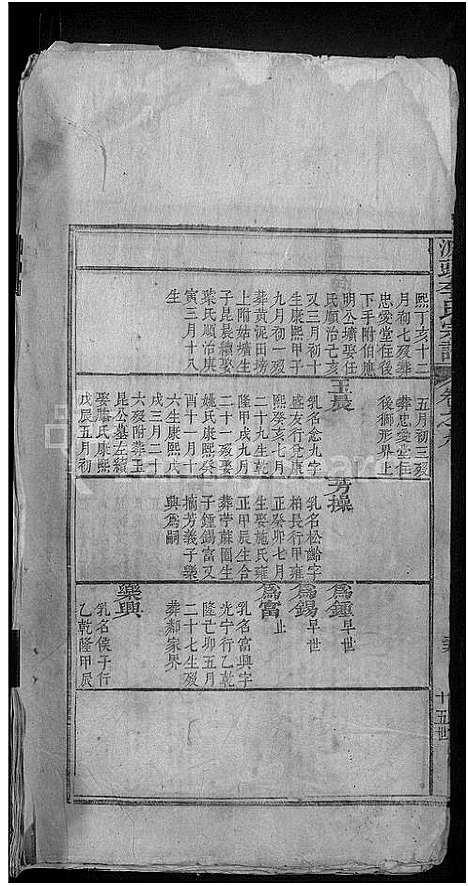 熙丁亥十二
月初七歿葬
忠愛堂任後
下手附伯康
明公壙娶任
氏順治己亥
又三月初十
生康熙甲子
九月初一歿
葬黃泥田塝
上附姑壙生
子昆晨續娶
葉氏順治庚
寅三月十八
生
五月初三歿
葬忠愛堂任
後獅形界止
玉晨
乳名念九字
盛友行覺康
熙癸亥七月
二十九生乾
隆甲戌九月
二十歿娶
姚氏康熙癸
酉十一月十
六生康熙戊
戌三月二十
六歿附葬玉
昆公墓左續
娶氏康熙
戊辰五月初
芳操
乳名松齡字
柏長行甲雍
正癸卯七月
生娶施氏雍
正甲辰生合
葬苧蔴園生
子鍾錫富又
摘芳義子樂
興為嗣
為鍾 早世
為錫 早世
為富 止
乳名富興字
光宁行乙乾
隆己卯五月
二十七生歿
葬鄰家界
樂興
乳名侯子行
乙乾隆甲辰
氏宗譜
十五世